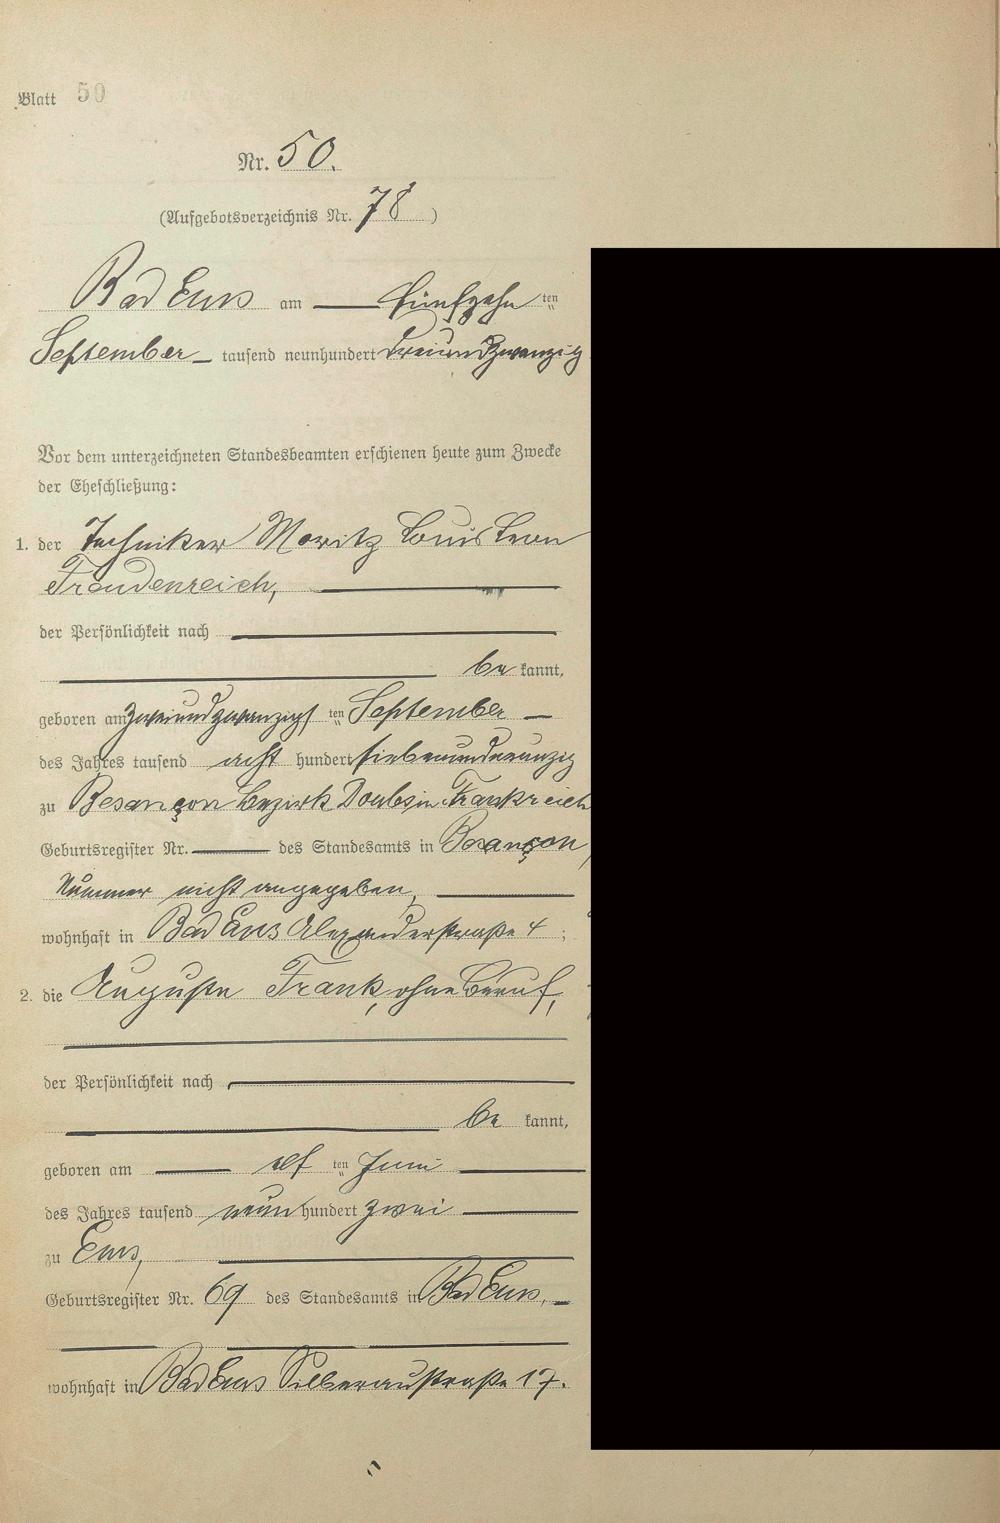 Blatt 50
Nr. 50.
(Aufgebotsverzeichnis Nr. 78)
Bad Ems am fünfzehnten
September tausend neunhundert dreiundzwanzig
Vor dem unterzeichneten Standesbeamten erschienen heute zum Zwecke
der Eheschließung:
1. der Techniker Moritz Louis Leon
Freudenreich,
der Persönlichkeit nach
bekannt,
geboren am zweiundzwanzigsten September
des Jahres tausend acht hundert siebenundneunzig
zu Besançon Bezirk Doubs in Frankreich
Geburtsregister Nr. des Standesamts in Besançon,
Nummer nicht angegeben,
wohnhaft in Bad Ems Alexanderstraße 4;
2. die Auguste Frank, ohne Beruf,
der Persönlichkeit nach
bekannt,
geboren am elften Juni
des Jahres tausend neunhundert zwei
zu Ems,
Geburtsregister Nr. 69 des Standesamts in Bad Ems,
wohnhaft in Bad Ems Silberaustraße 17.